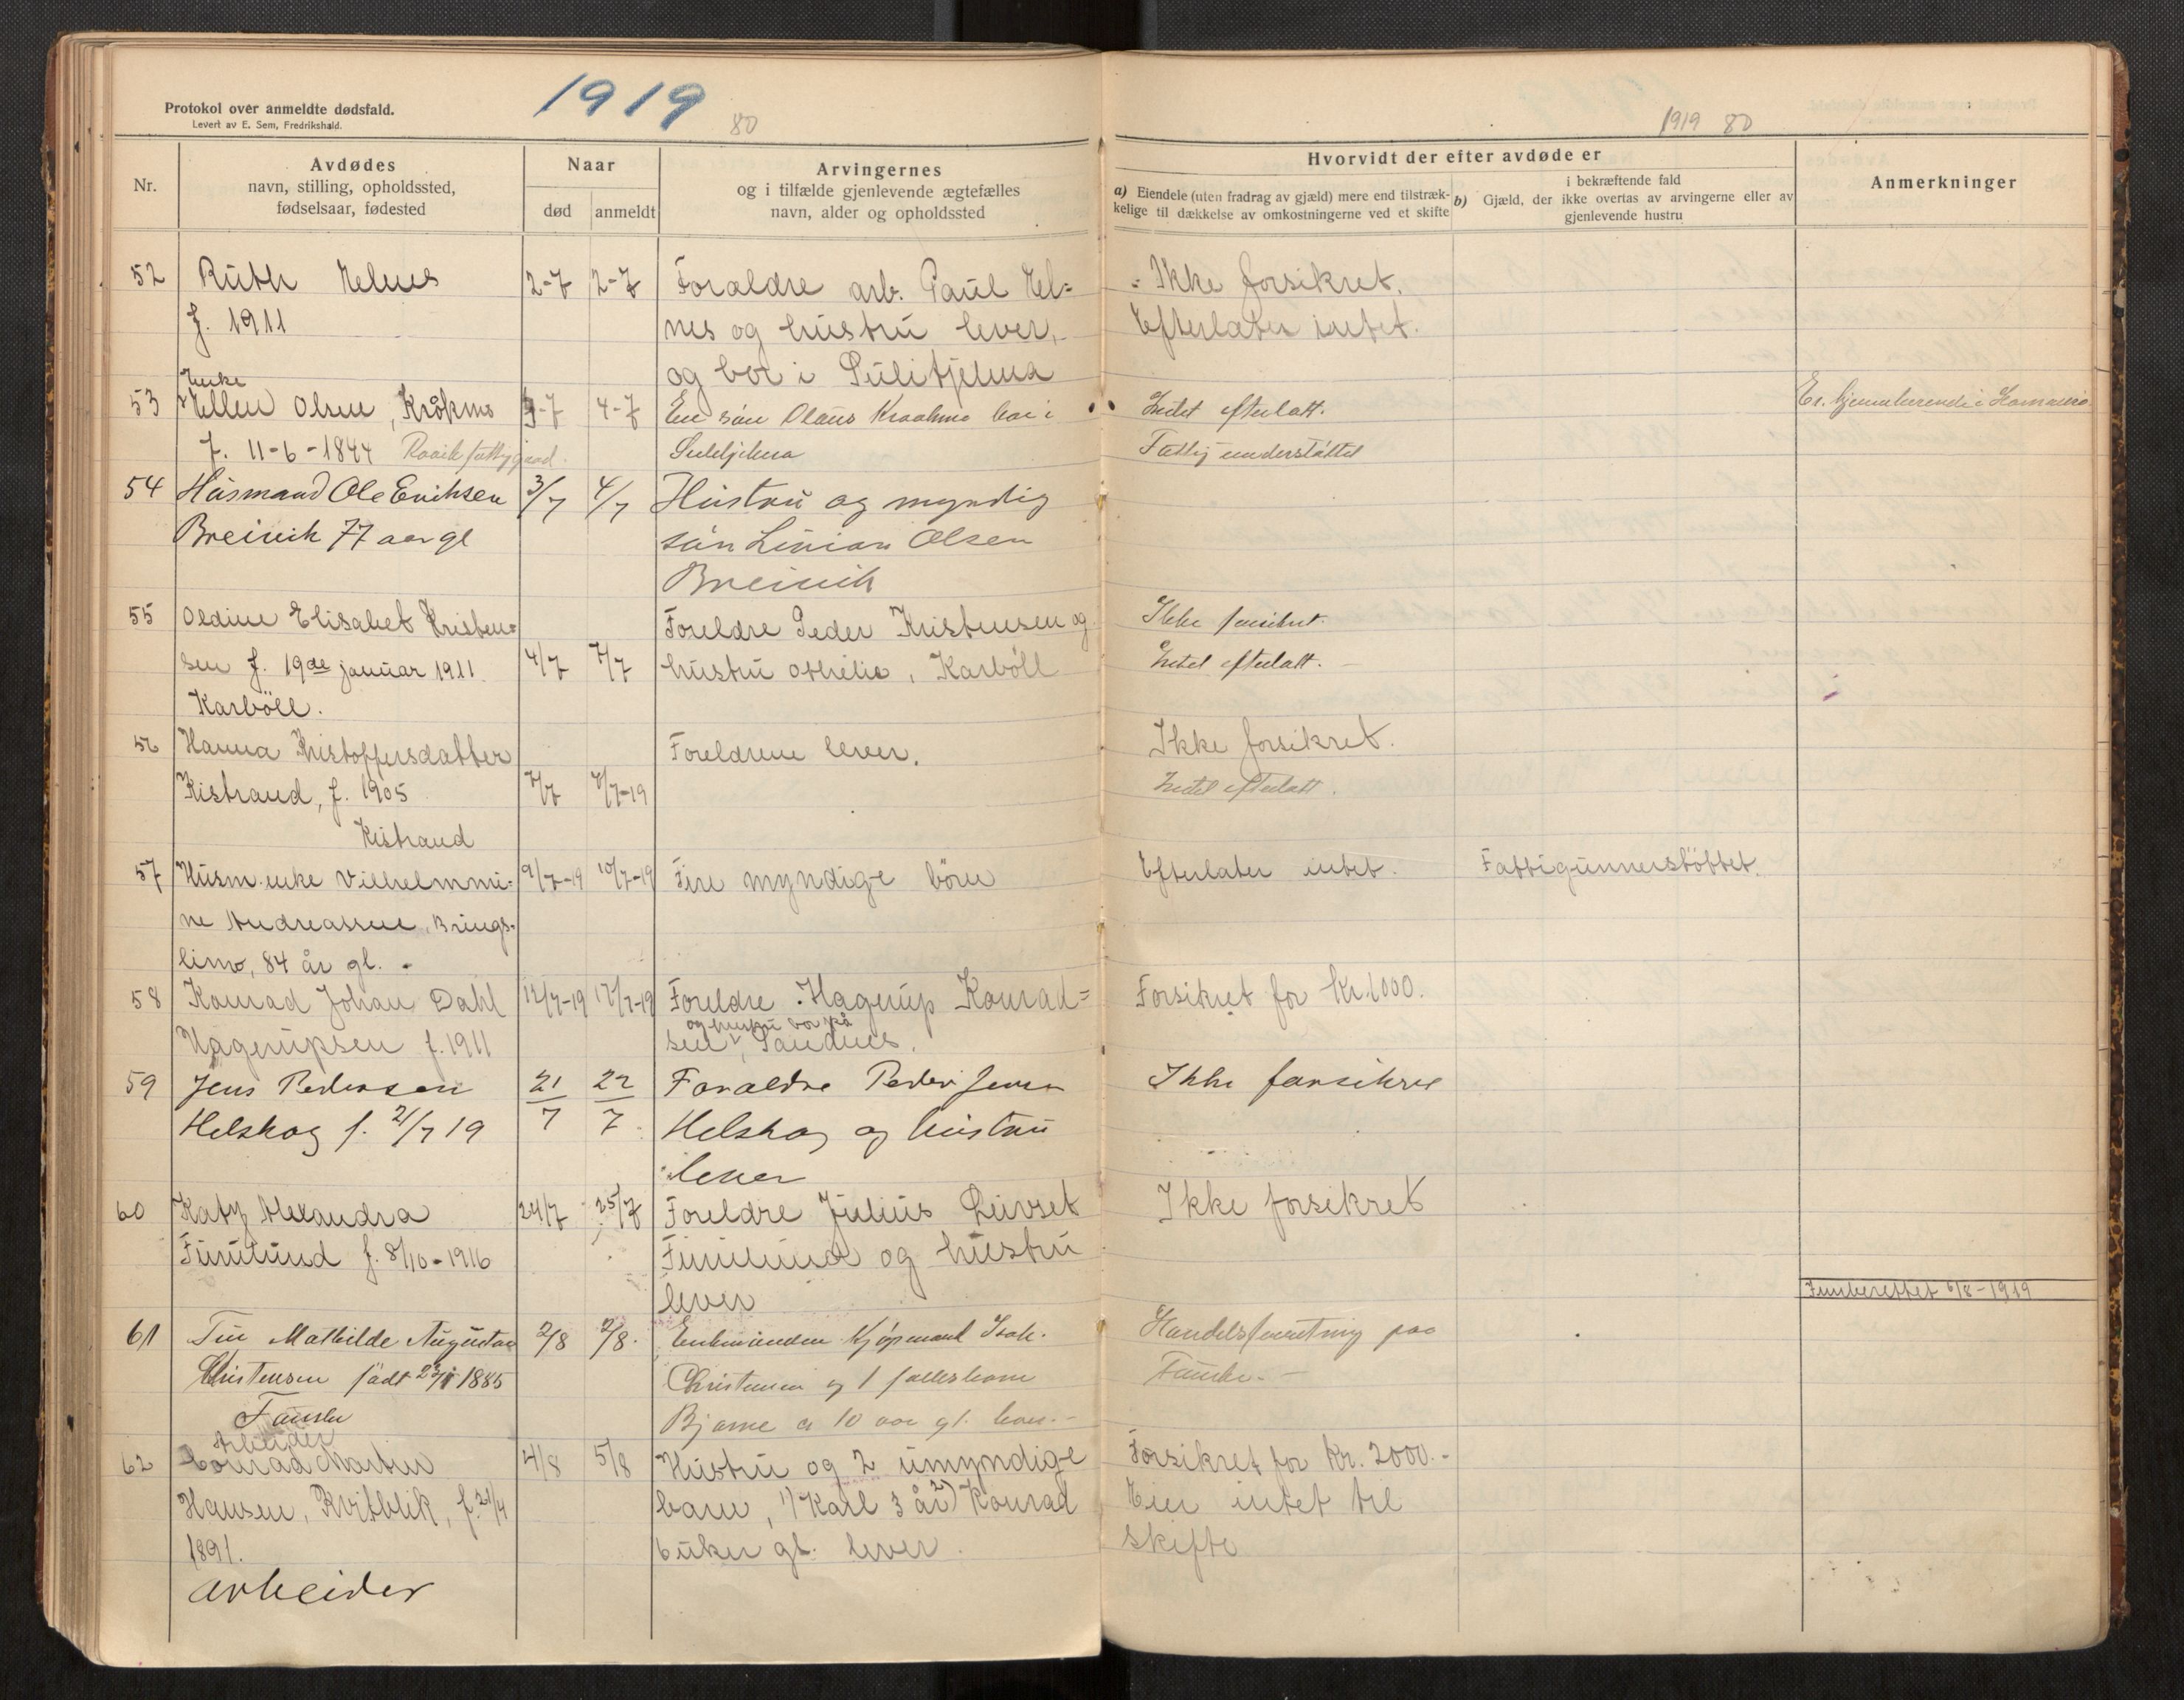 Protokol over anmeldte dødsfald.
Levert av E. Sem, Fredrikshald.
1919
80
1919 80
Nr.
Avdødes
navn, stilling, opholdssted,
fødselsaar, fødested
Naar
død anmeldt
Arvingernes
og i tilfælde gjenlevende ægtefælles
navn, alder og opholdssted
Hvorvidt der efter avdøde er
a) Eiendele (uten fradrag av gjæld) mere end tilstræk-
kelige til dækkelse av omkostningerne ved et skifte
i bekræftende fald
b) Gjæld, der ikke overtas av arvingerne eller av
gjenlevende hustru
Anmerkninger
52 Ruth Velnes 2-7 2-7 Foraldre arb. Paul Vel= Ikke forsikret.
f. 1911 nes og hustru lever, Efterlater intet.
og bor i Sulitjelma
Enke
53 Ellen Olsen, Kråkmo 3-7 4-7 En sön Olaus Kraakmo bor i Intet efterlatt. Er hjemhørende i Hamarø
f. 11-6-1844 Røvik fattiggaard. Sulitjelma Fattigunderstöttet
54 Husmand Ole Eriksen 3/7 4/7 Hustru og myndig
Breivik 77 aar gl sön Linian Olsen
Breivik
55 Oldine Elisabet Kristen= Foreldre Peder Kristensen og Ikke forsikret.
sen f. 19de januar 1911. 4/7 7/7 hustru Othilie, Karböll Intet efterlatt.
Karböll.
56 Hanna Kristoffersdatter Foreldrene lever. Ikke forsikret.
Kistrand, f. 1905 7/7 7/7-19 Intet efterlatt.
Kistrand
57 Husm.enke Vilhelmmi= 9/7-19 10/7-19 Fire myndige börn Efterlater intet. Fattigunnerstöttet.
ne Andreassen, Brings-
limo, 84 år gl.
58 Konrad Johan Dahl 12/7-19 17/7-19 Foreldre Hagerup Konrad= Forsikret for kr. 1000.
og hustru bor på
Hagerupsen f. 1911 sen, Sandnes.
59 Jens Pedersen 21/7 22/7 Foraldre Peder Jensen Ikke forsikret
Helskog f. 21/7 19 Helskog og hustru
lever
60 Katy Alexandra 24/7 25/7 Foreldre Julius Leivset Ikke forsikret
Furulund f. 8/10-1916 Furulund og hustru
lever
Innberettet 6/8-1919
61 Fru Mathilde Augusta 2/8 2/8. Enkemanden Kjøpmand Isak Handelsforretning paa
Christensen födt 1885 Christensen og 1 fællesbarn Fauske.
Fauske Bjarne ca 10 aar gl. lever.
Arbeider
62 Conrad Martin 4/8 5/8 Hustru og 2 umyndige Forsikret for kr. 2000.-
Hansen, Kvitblik, f. 21/4 barn, 1) Karl 3 år 2) Konrad Eier intet til
1891. 6 uker gl. lever. skifte
arbeider